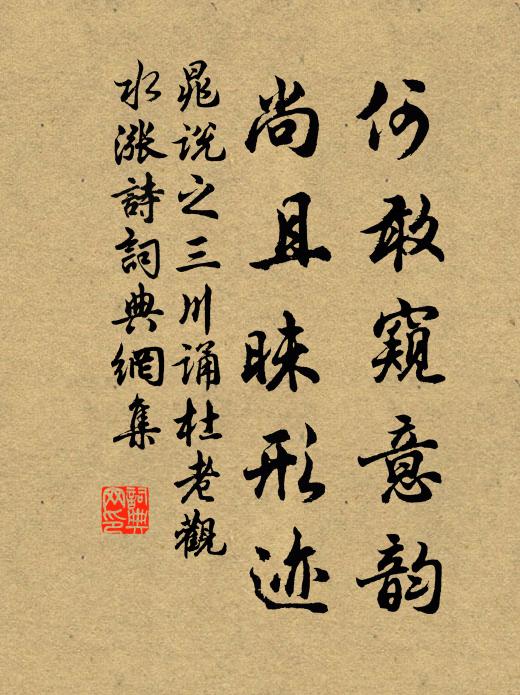 何敢窺意韵
尚且昧形迹
晁說之三川誦杜老觀
水漲詩詞典網集
詞典
网印